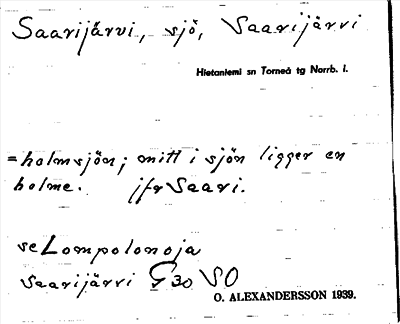 Saarijärvi, sjö, Saarijärvi
Hietaniemi sn Torneå tg Norrb. l.
=holmsjön; mitt i sjön ligger en
holme. jfr Saari.
se Lompolonoja
Saarijärvi G30 SO
O. ALEXANDERSSON 1939.